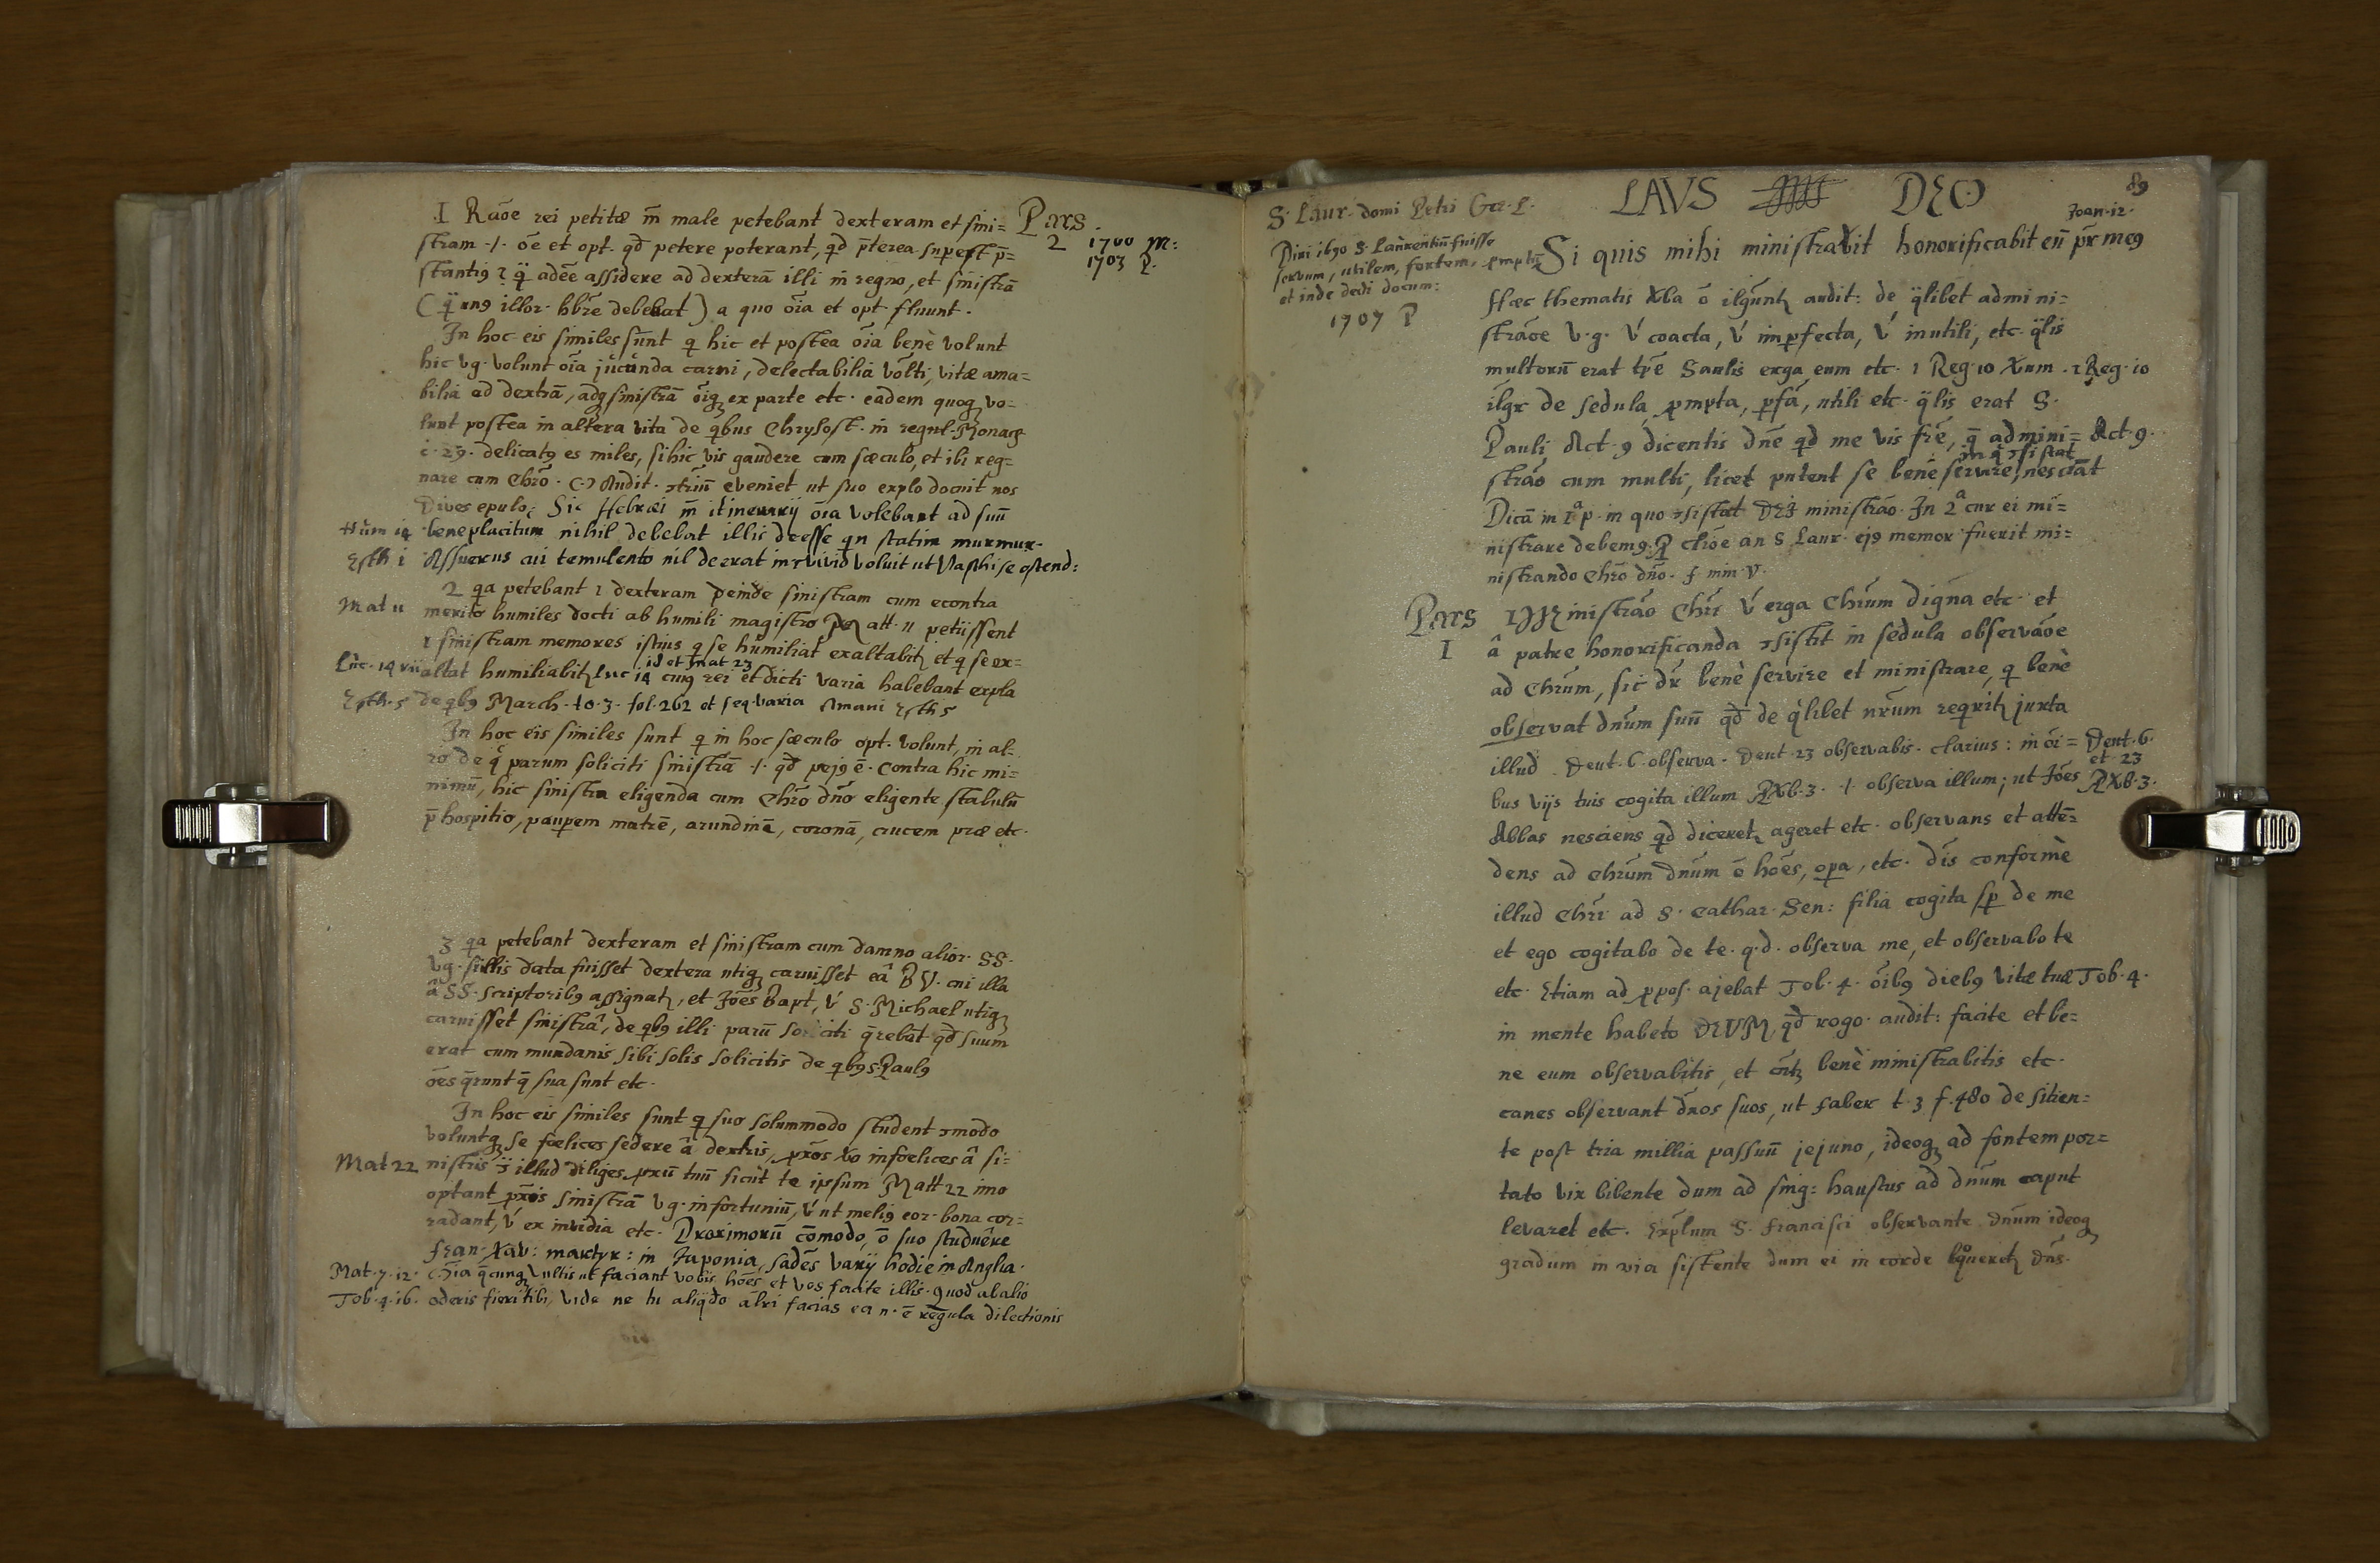 I Raõe rei petitæ m̄ male petebant dexteram et sini=
Pars.
2 1700 M:
1703 P.
stram ·/· õe et opt. qd petere poterant, qd p̄terea superest p̄=
stantiꝰ adẽe assidere ad dexterã illi in regno, et sinistrã
( unꝰ illor. hbr̃e debebat ) a quo õia et opt. fluunt.
In hoc eis similes sunt q hic et postea õia benè volunt
hic vg. volunt õia jucunda carni, delectabilia võlti, vitæ ama=
bilia ad dextrã, adq sinistrã õiq ex parte etc. eadem quoq vo=
lunt postea in altera vita de qbus Chrysost. in regul. Monach
c. 29. delicatꝰ es miles, si hic vis gaudere cum sæculo, et ibi reg=
nare cum Chr̃o. Audit. eveniet ut suo explo docuit nos
Dives epulo; Sic Hebræi in itinerarij õia volebant ad suũ
Num 14 beneplacitum nihil debebat illis deesse qn statim murmur.
Esth i Assuerus cui temulento nil deerat voluit ut Vasthi se ostend:
2 qa petebant 1 dexteram deinde sinistram cum econtra
Mat ii merito humiles docti ab humili magistro Matt. 11 petiissent
1 sinistram memores istius q se humiliat exaltabitꝫ et q se ex=
id et Mat 23
Luc. 14 altat humiliabitꝫ Luc 14 cujꝰ rei et dicti varia habebant expla
Esth. 5 de qbꝰ March. to. 3. fol. 262 et seq. varia Amani Esth 5
In hoc eis similes sunt q in hoc sæculo opt. volunt, in al=
rõ de q parum soliciti sinistrã ·/· qd pejꝰ ẽ. Contra hic mi=
nimũ, hic sinistra eligenda cum Chr̃o dño eligente stabulũ
p̄ hospitio, pauperem matrẽ, arundinẽ, coronã, crucem præ etc.
3 qa petebant dexteram et sinistram cum damno alior. SS.
vg. si illis data fuisset dextera utiq caruisset eâ B V. cui illa
â SS. scriptoribꝰ assignatꝫ, et Jões Bapt, v́ S. Michael utiq
caruisset sinistrâ, de qbꝰ illi parũ soliciti q̄rebãt qd suum
erat cum mundanis sibi solis solicitis de qbꝰ S. Paulꝰ
ões q̄runt q̄ sua sunt etc.
In hoc eis similes sunt q suo solummodo student modo
voluntq se fœlices sedere â dextris, prõs vo infœlices â si=
Mat 22 nistris illud diliges prũ tuũ sicut te ipsum Matt 22 imo
optant prõis sinistrã vg. infortuniũ, v́ ut meliꝰ eor. bona cor=
radant, v́ ex invidia etc. Proximorũ cõmodo, õ suo studuêre
Fran. Xav: martyr: in Japonia, sadẽs varij hodie in Anglia.
Mat. 7. 12. Õia q̄cunq vultis ut faciant vobis hões et vos facite illis. Quod ab alio
Tob. 4. 16. oderis fieri tibi, vide ne tu aliq̃do al̃ri facias ea n. ẽ regula dilectionis
89
S. Laur. domi Petri
Dixi 1690 S. Laurentiũ fuisse
servum, utilem, fortem, promptũ
et inde dedi docum:
1707 P
LAVS DEO
Joan. 12.
Si quis mihi ministravit honorificabit eũ pr̃ meꝰ
Hæc thematis Xba õ audit: de q̃libet admini=
strãoe v.g. v́ coacta, v́ imperfecta, v́ inutili, etc. q̃lis
multorũ erat tpẽ Saulis erga eum etc. 1 Reg. 10 Xum. 1 Reg. 10
ilgr de sedula, prompta, pfã, utili etc. q̃lis erat S.
Pauli, Act. 9 dicentis dñe qd me vis frẽ, q̄ admini= Act. 9.
in q sistat
strão cum multi, licet putent se benè servire, nesciãt
Dicã in 1ª p. in quo sistat DEI ministrão. In 2ª cur ei mi=
nistrare debemꝰ. P ctiõe an S Laur. ejꝰ memor fuerit mi=
nistrando Chr̃o dño. f min. v.
Pars I
1 Ministrão Chr̃i v́ erga Chr̃um digna etc. et
â patre honorificanda sistit in sedula observãoe
ad Chr̃um, sic dr̃ benè servire et ministrare, q benè
observat dñum suũ qd de q̃libet nr̃um req̃ritꝫ juxta
illud Deut. 6. observa. Deut. 23 observabis. clarius: in õi= Deut. 6. et 23
bus vijs tuis cogita illum PXb. 3. ·/· observa illum; ut Jões PXB. 3.
Abbas nesciens qd diceretꝫ ageret etc. observans et attẽ=
dens ad Chr̃um dñum õ hões, opa, etc. dĩs conformè
illud Chr̃i ad S. Cathar. Sen: filia cogita sp de me
et ego cogitabo de te. q.d. observa me, et observabo te
etc. Etiam ad ppos. ajebat Tob. 4. õibꝰ diebꝰ vitæ tuæ Tob. 4.
in mente habeto DEVM qd rogo. audit: facite et be=
ne eum observabitis, et benè ministrabitis etc.
canes observant dños suos, ut Faber t. 3 f. 480 de sitien=
te post tria millia passuũ jejuno, ideoq ad fontem por=
tato vix bibente dum ad sing: haustus ad dñum caput
levaret etc. Explum S. Francisci observante dñum ideoq
gradum in via sistente dum ei in corde loqueretꝫ dñs.